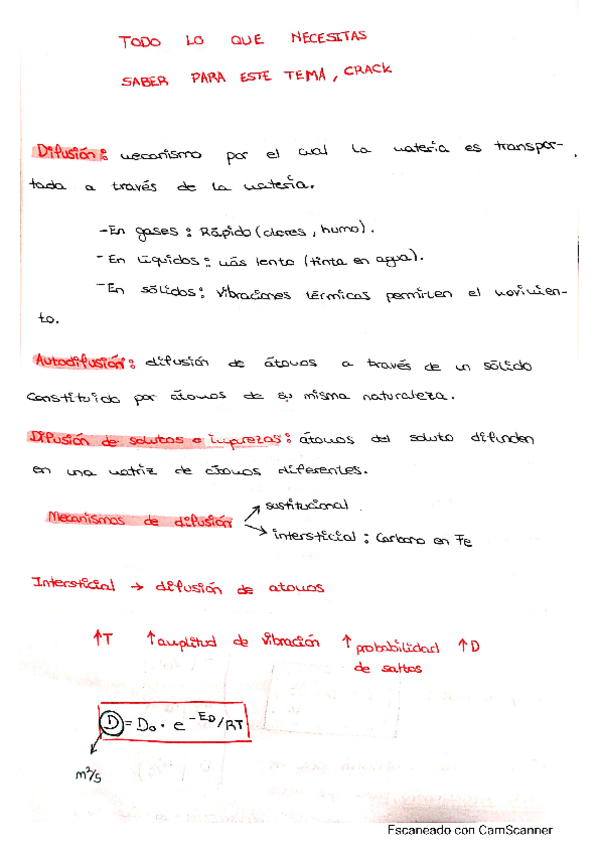 TODO LO QUE NECESITAS
SABER PARA ESTE TEMA, CRACK
Difusión: mecanismo por el cual la materia es transpor-
tada a través de la materia.
-En gases: Rápido (olores, humo).
-En líquidos: más lento (tinta en agua).
-En sólidos: vibraciones térmicas permiten el movimien-
to.
Autodifusión: difusión de átomos a través de un sólido
constituido por átomos de su misma naturaleza.
Difusión de solutos o impurezas: átomos del soluto difunden
en una matriz de átomos diferentes.
Mecanismos de difusión
sustitucional
intersticial: Carbono en Fe
Intersticial → difusión de átomos
↑T ↑amplitud de vibración ↑probabilidad ↑D
de saltos
D = D₀ · e^-E_D/RT
m²/s
Escaneado con CamScanner